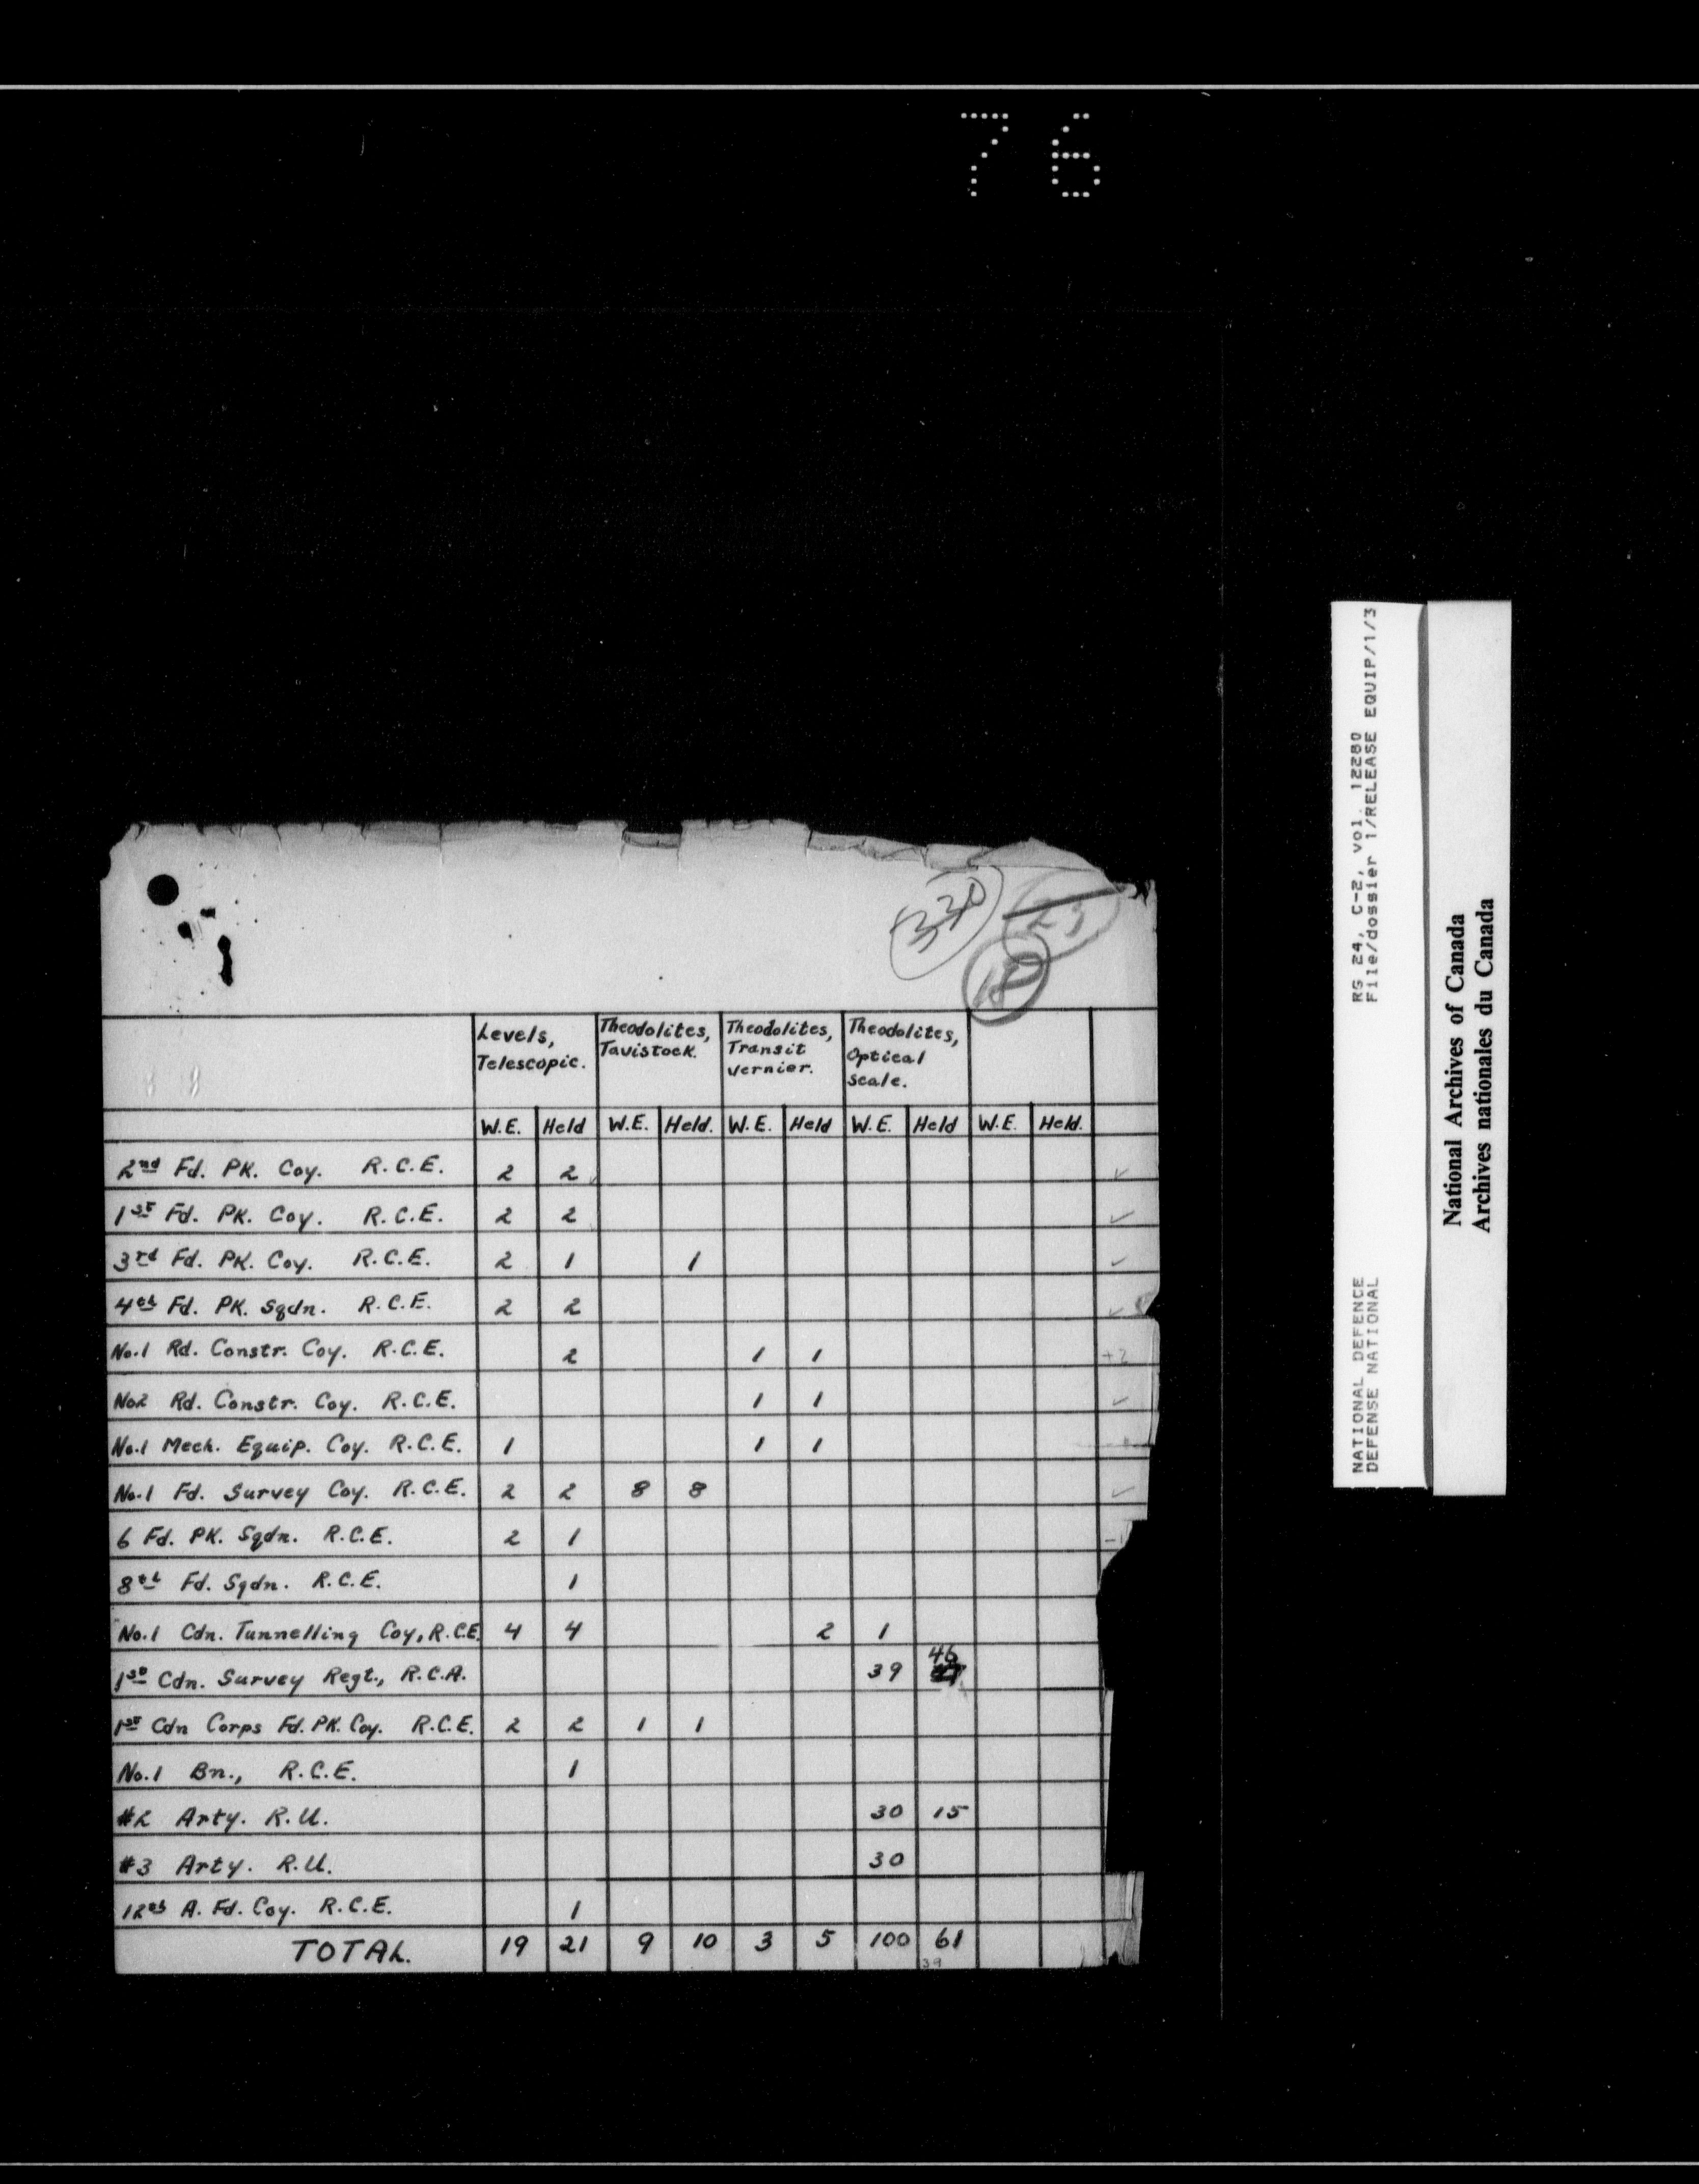 76
330
23
18
Levels, Telescopic. Theodolites, Tavistock. Theodolites, Transit Vernier. Theodolites, Optical Scale.
W.E. Held W.E. Held. W.E. Held W.E. Held W.E. Held.
2nd Fd. PK. Coy. R.C.E. 2 2 ✓
1st Fd. PK. Coy. R.C.E. 2 2 ✓
3rd Fd. PK. Coy. R.C.E. 2 1 1 ✓
4th Fd. PK. Sqdn. R.C.E. 2 2 ✓
No.1 Rd. Constr. Coy. R.C.E. 2 1 1 +2
No2 Rd. Constr. Coy. R.C.E. 1 1 ✓
No.1 Mech. Equip. Coy. R.C.E. 1 1 1
No.1 Fd. Survey Coy. R.C.E. 2 2 8 8 ✓
6 Fd. PK. Sqdn. R.C.E. 2 1
8th Fd. Sqdn. R.C.E. 1
No.1 Cdn. Tunnelling Coy, R.C.E. 4 4 2 1
1st Cdn. Survey Regt., R.C.A. 39 46
1st Cdn Corps Fd. PK. Coy. R.C.E. 2 2 1 1
No.1 Bn., R.C.E. 1
#2 Arty. R.U. 30 15
#3 Arty. R.U. 30
12th A. Fd. Coy. R.C.E. 1
TOTAL. 19 21 9 10 3 5 100 61
39
NATIONAL DEFENCE RG 24, C-2, vol. 12280
DEFENSE NATIONAL File/dossier 1/RELEASE EQUIP/1/3
National Archives of Canada
Archives nationales du Canada